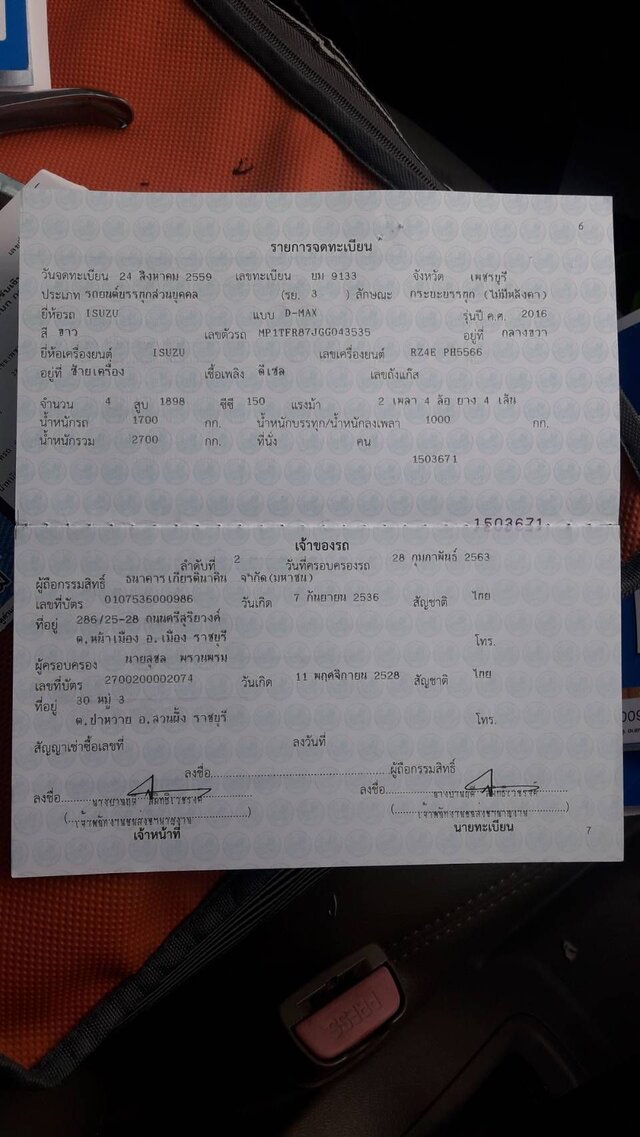 6
รายการจดทะเบียน
วันจดทะเบียน 24 สิงหาคม 2559 เลขทะเบียน บม 9133 จังหวัด เพชรบุรี
ประเภท รถยนต์บรรทุกส่วนบุคคล (รย. 3 ) ลักษณะ กระบะบรรทุก (ไม่มีหลังคา)
ยี่ห้อรถ ISUZU แบบ D-MAX รุ่นปี ค.ศ. 2016
สี ขาว เลขตัวรถ MP1TFR87JGG043535 อยู่ที่ กลางขวา
ยี่ห้อเครื่องยนต์ ISUZU เลขเครื่องยนต์ RZ4E PH5566
อยู่ที่ ซ้ายเครื่อง เชื้อเพลิง ดีเซล เลขถังแก๊ส
จำนวน 4 สูบ 1898 ซีซี 150 แรงม้า 2 เพลา 4 ล้อ ยาง 4 เส้น
น้ำหนักรถ 1700 กก. น้ำหนักบรรทุก/น้ำหนักลงเพลา 1000 กก.
น้ำหนักรวม 2700 กก. ที่นั่ง คน
1503671
1503671
เจ้าของรถ
ลำดับที่ 2 วันที่ครอบครองรถ 28 กุมภาพันธ์ 2563
ผู้ถือกรรมสิทธิ์ ธนาคารเกียรตินาคิน จำกัด(มหาชน)
เลขที่บัตร 0107536000986 วันเกิด 7 กันยายน 2536 สัญชาติ ไทย
ที่อยู่ 286/25-28 ถนนศรีสุริยวงค์
ต.หน้าเมือง อ.เมือง ราชบุรี โทร.
ผู้ครอบครอง นายสุชล พรานพรม
เลขที่บัตร 2700200002074 วันเกิด 11 พฤศจิกายน 2528 สัญชาติ ไทย
ที่อยู่ 30 หมู่ 3
ต.ป่าหวาย อ.สวนผึ้ง ราชบุรี โทร.
สัญญาเช่าซื้อเลขที่ ลงวันที่
ลงชื่อ ผู้ถือกรรมสิทธิ์
ลงชื่อ ลงชื่อ
เจ้าหน้าที่ นายทะเบียน
7
PRESS